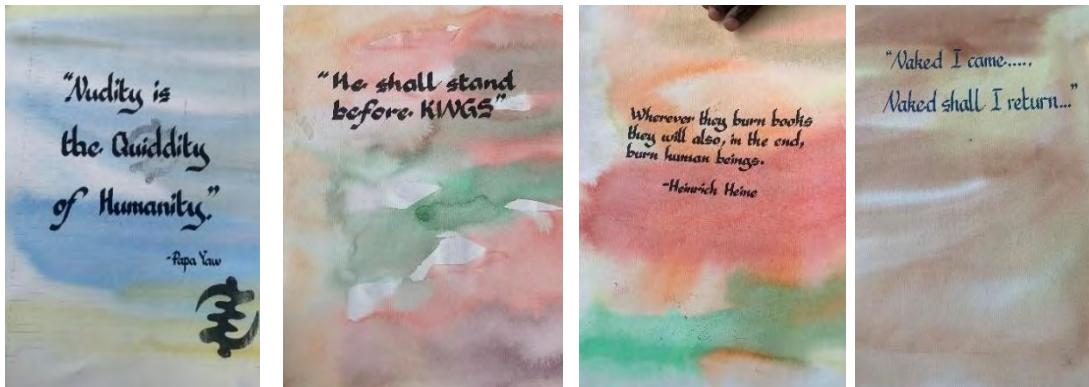 "Nudity is
the Quiddity
of Humanity."
-Papa Yaw
"He shall stand
before KINGS"
Wherever they burn books
they will also, in the end,
burn human beings.
-Heinrich Heine
"Naked I came.....
Naked shall I return..."